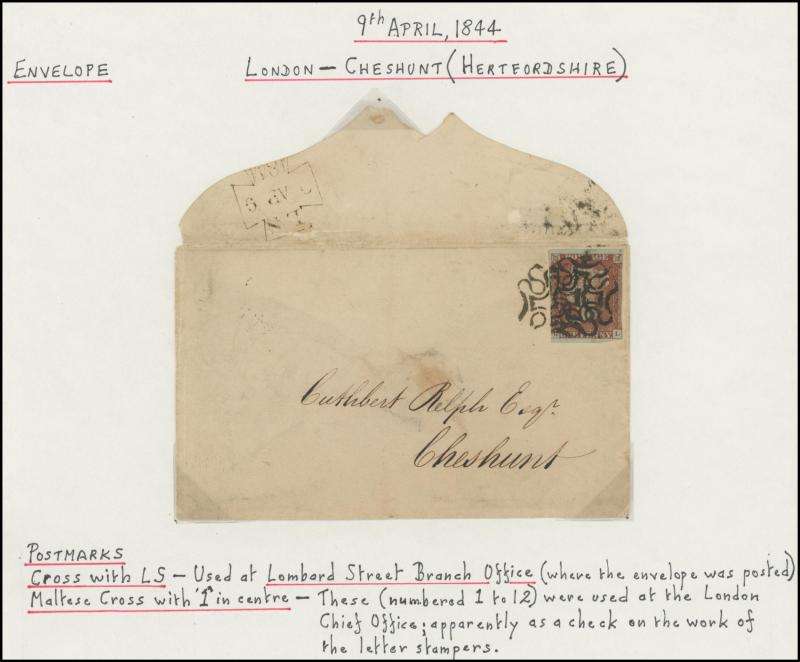 9th APRIL, 1844
ENVELOPE
LONDON — CHESHUNT (HERTFORDSHIRE)
POSTAGE
L
Cuthbert Relph Esqr.
Cheshunt
POSTMARKS
Cross with LS — Used at Lombard Street Branch Office (where the envelope was posted)
Maltese Cross with '1' in centre — These (numbered 1 to 12) were used at the London
Chief Office; apparently as a check on the work of
the letter stampers.